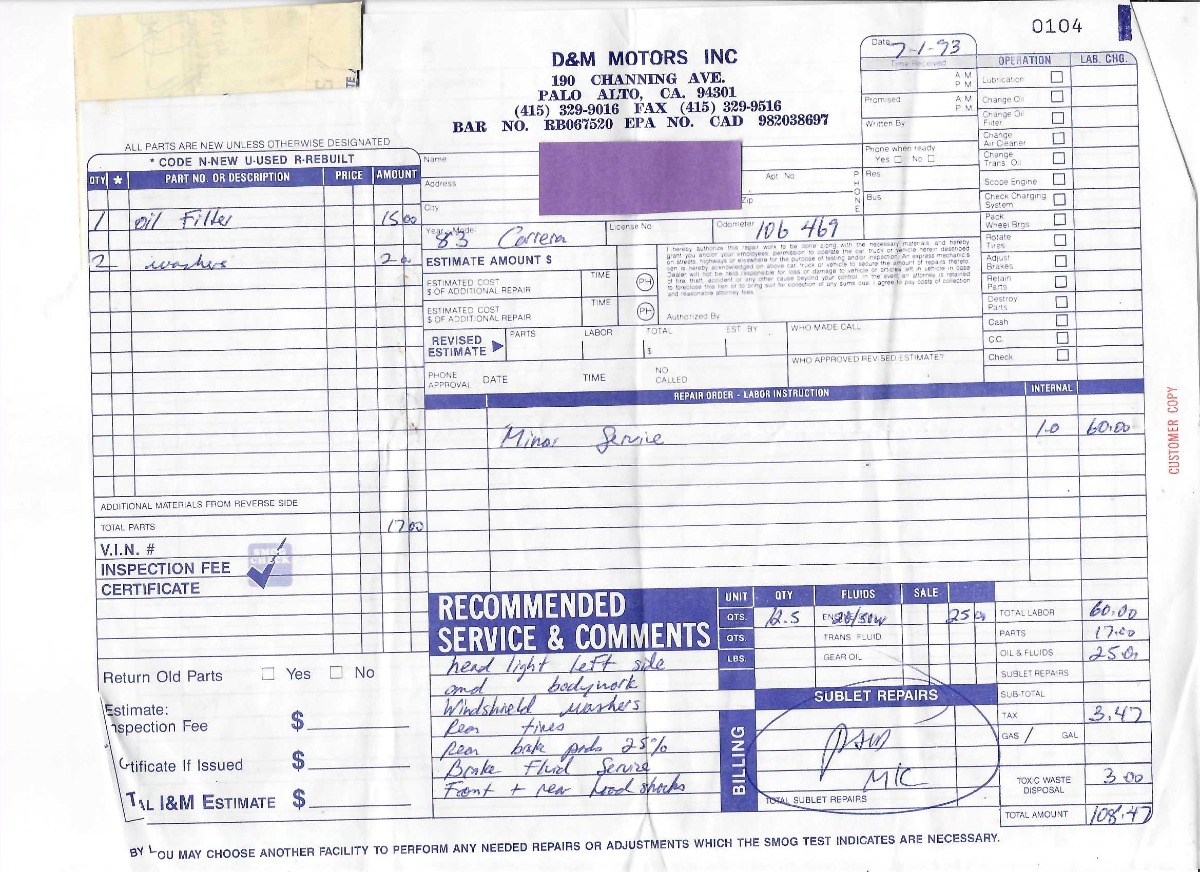 0104
D&M MOTORS INC
190 CHANNING AVE.
PALO ALTO, CA. 94301
(415) 329-9016 FAX (415) 329-9516
BAR NO. RB067520 EPA NO. CAD 982038697
Date 7-1-93
Time Received
A M
P M
Promised
A M
P M
Written By
Phone when ready
Yes No
OPERATION LAB. CHG.
Lubrication
Change Oil
Change Oil Filter
Change Air Cleaner
Change Trans Oil
Scope Engine
Check Charging System
Pack Wheel Brgs
Rotate Tires
Adjust Brakes
Retain Parts
Destroy Parts
Cash
C.C.
Check
ALL PARTS ARE NEW UNLESS OTHERWISE DESIGNATED
* CODE N-NEW U-USED R-REBUILT
QTY * PART NO. OR DESCRIPTION PRICE AMOUNT
1 oil Filter 15 00
2 washers 2 00
ADDITIONAL MATERIALS FROM REVERSE SIDE
TOTAL PARTS 17 00
V.I.N. #
INSPECTION FEE
CERTIFICATE
SMOG CHECK
Name
Address Apt. No
City Zip
PHONE
Res
Bus
Year 83 Carrera
License No.
Odometer 106 469
ESTIMATE AMOUNT $
ESTIMATED COST
$ OF ADDITIONAL REPAIR
TIME
PH
ESTIMATED COST
$ OF ADDITIONAL REPAIR
TIME
PH
I hereby authorize this repair work to be done along with the necessary materials, and hereby
grant you and/or your employees, permission to operate the car, truck or vehicle herein described
on streets, highways or elsewhere for the purpose of testing and/or inspection. An express mechanic's
lien is hereby acknowledged on above car, truck or vehicle to secure the amount of repairs thereto.
Authorized By
REVISED ESTIMATE
PARTS LABOR TOTAL EST BY WHO MADE CALL
$
PHONE APPROVAL DATE TIME NO CALLED WHO APPROVED REVISED ESTIMATE?
REPAIR ORDER - LABOR INSTRUCTION INTERNAL
Minor Service 1.0 60.00
CUSTOMER COPY
RECOMMENDED
SERVICE & COMMENTS
head light left side
and bodywork
Windshield washers
Rear tires
Rear brake pads 25%
Brake Fluid Service
Front + rear hood shocks
UNIT QTY FLUIDS SALE
QTS. 12.5 20/50w 25 00
QTS. TRANS FLUID
LBS. GEAR OIL
SUBLET REPAIRS
BILLING
MIC
TOTAL SUBLET REPAIRS
TOTAL LABOR 60.00
PARTS 17.00
OIL & FLUIDS 25.00
SUBLET REPAIRS
SUB-TOTAL
TAX 3.47
GAS / GAL
TOXIC WASTE DISPOSAL 3 00
TOTAL AMOUNT 108.47
Return Old Parts Yes No
Estimate:
nspection Fee $
rtificate If Issued $
AL I&M ESTIMATE $
OU MAY CHOOSE ANOTHER FACILITY TO PERFORM ANY NEEDED REPAIRS OR ADJUSTMENTS WHICH THE SMOG TEST INDICATES ARE NECESSARY.